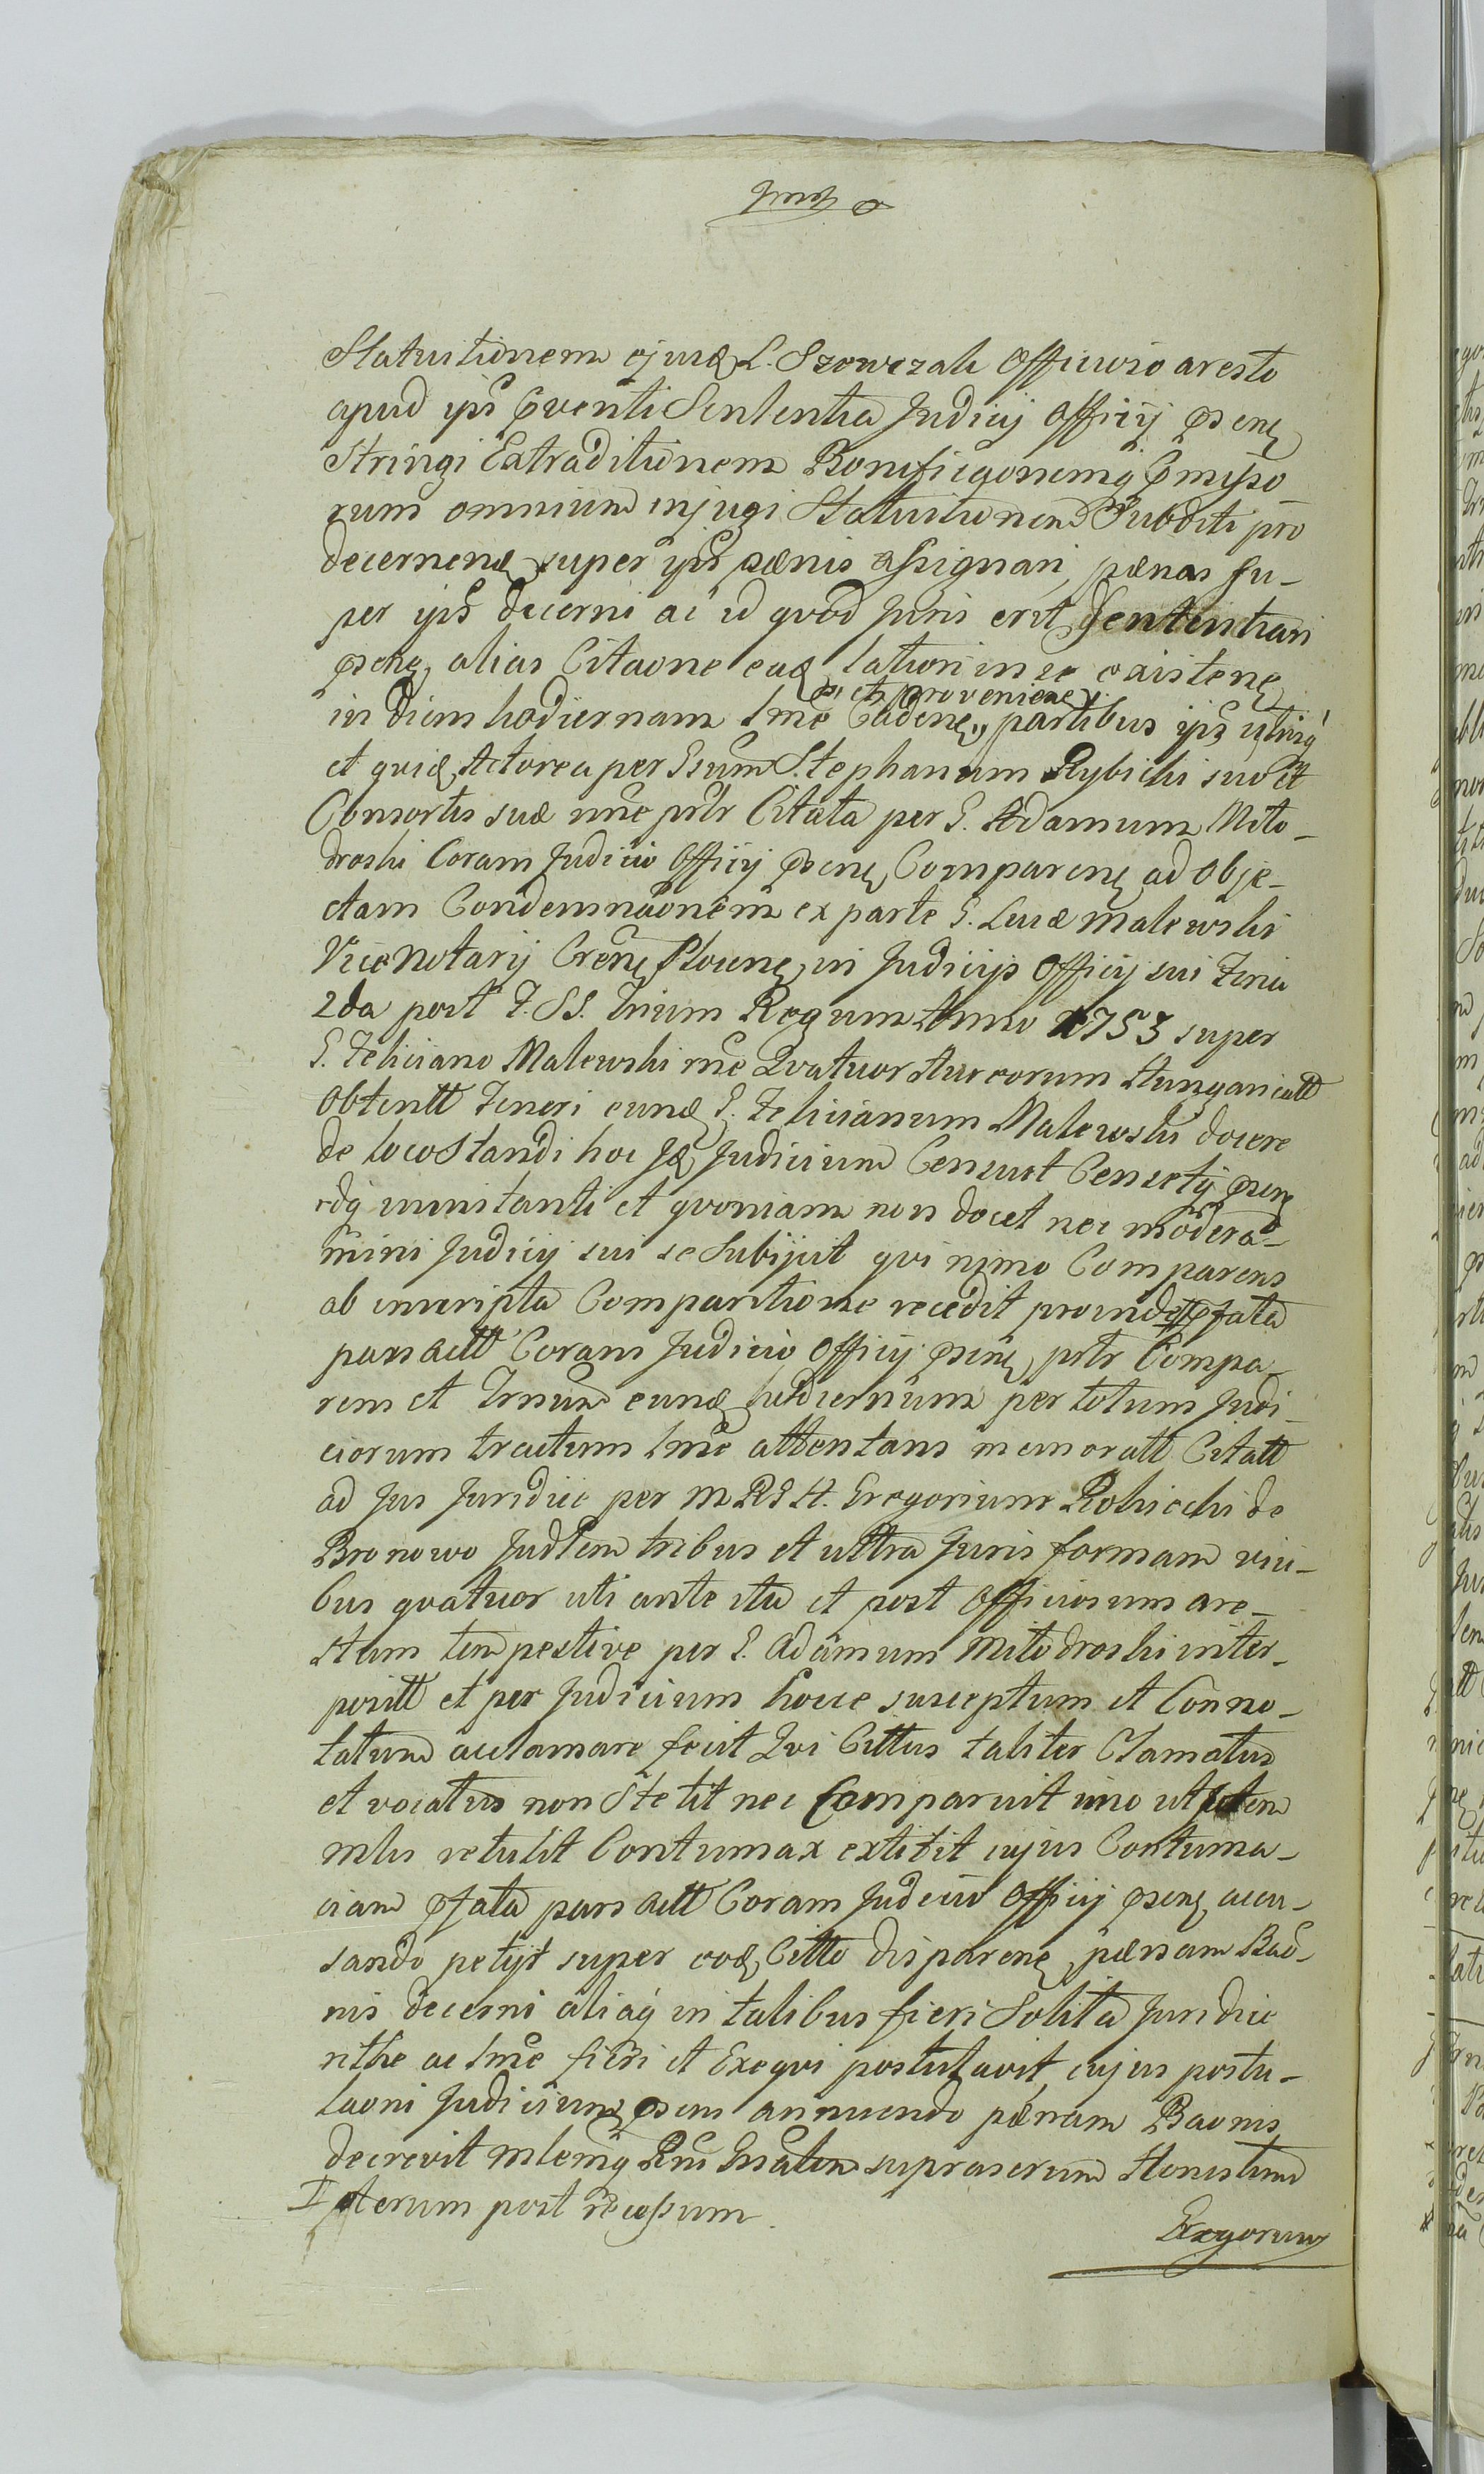 Statuitionem ejusd L. Szewczak Officioso aresto
apud ips Cventi Sententia Judicij Officij psens
Stringi Extraditionem Bonificaonemq Cmisso
rum omnium injugi Statuitionem Subditi pro
decernend super ips pænis assignari, pænas su-
per ips decerni ac id quod Juris erit Sententiari
psens, alias Citaone ead lationi in se existens
et proveniens
in Diem hodiernam tme Cadens, partibus ips utrisq
et quid, Actorea per Gsum Stephanum Rybicki suo et
Consortis suæ nne psltr Citata per G. Adamum Mito-
droski Coram Judicio Officij psens Comparens ad Obje-
ctam Condemnaonem ex parte G. Lucæ Malewski
Vice Notarij Crens Plocens in Judicijs Officij sui Feria
2da post F. SS. Trium Regum Anno 1753 super
G. Feliciano Malewski rne Quatuor Aureorum Hungaricall
Obtentt Teneri eund G. Felicianum Malewski docere
de loco Standi hoc Jd Judicium Censuit Censetq psens
idq uninstanti et quoniam non docet nec modera-
mini Judicij sui se Subijcit qui nimo Comparens
ab inscripta Comparitione recedit proinde pfata
pars actt Coram Judicio Officij psens psltr Compa-
rens et Trnum eund hodiernum per totum Judi-
ciorum tractum tme attentans memoratt Citatt
ad Jus Juridice per M R G H. Gregorium Rokicki de
Bronowo Judlem tribus et ultra Juris formam vici-
bus quatuor uti ante ita et post Officiosum are-
stum tempestive per G. Adamum Mitodroski inter-
positt et per Judicium hocce susceptum et Conno-
tatum acclamare fecit Qui Cittus taliter Clamatus
et vocatus non Stetit nec Comparuit imo ut idem
mlis retulit Contumax extitit cujus Contuma-
ciam pfata pars actt Coram Judicio Officij psens accu-
sando petijt super eod Citto disparens pænam Bao-
nis decerni aliaq in talibus fieri Solita Juridice
nthe ac tme fieri et Exequi postulavit, cujus postu-
laoni Judicium psens annuendo pænam Baonis
decrevit mlemq Rni Gnalem suprascrum Honestum
Iterum post recessum
Gregorium